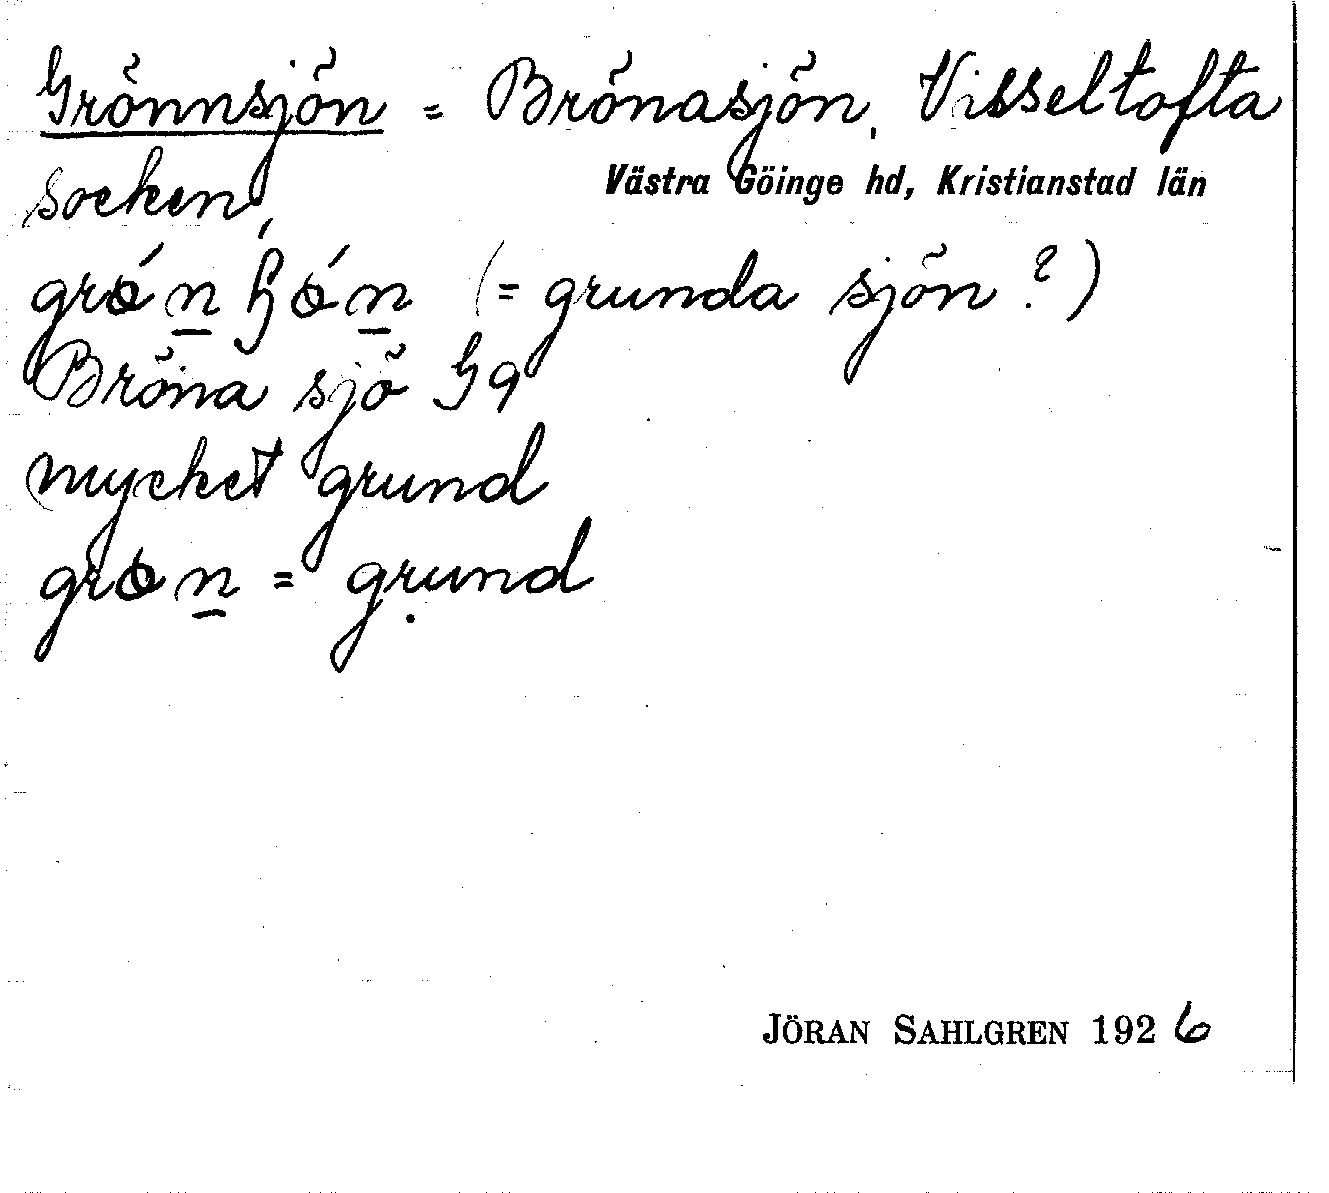 Grönnsjön = Brönasjön, Visseltofta
socken,
Västra Göinge hd, Kristianstad län
(= grunda sjön?)
Bröna sjö G9
mycket grund
grøn = grund
JÖRAN SAHLGREN 1926